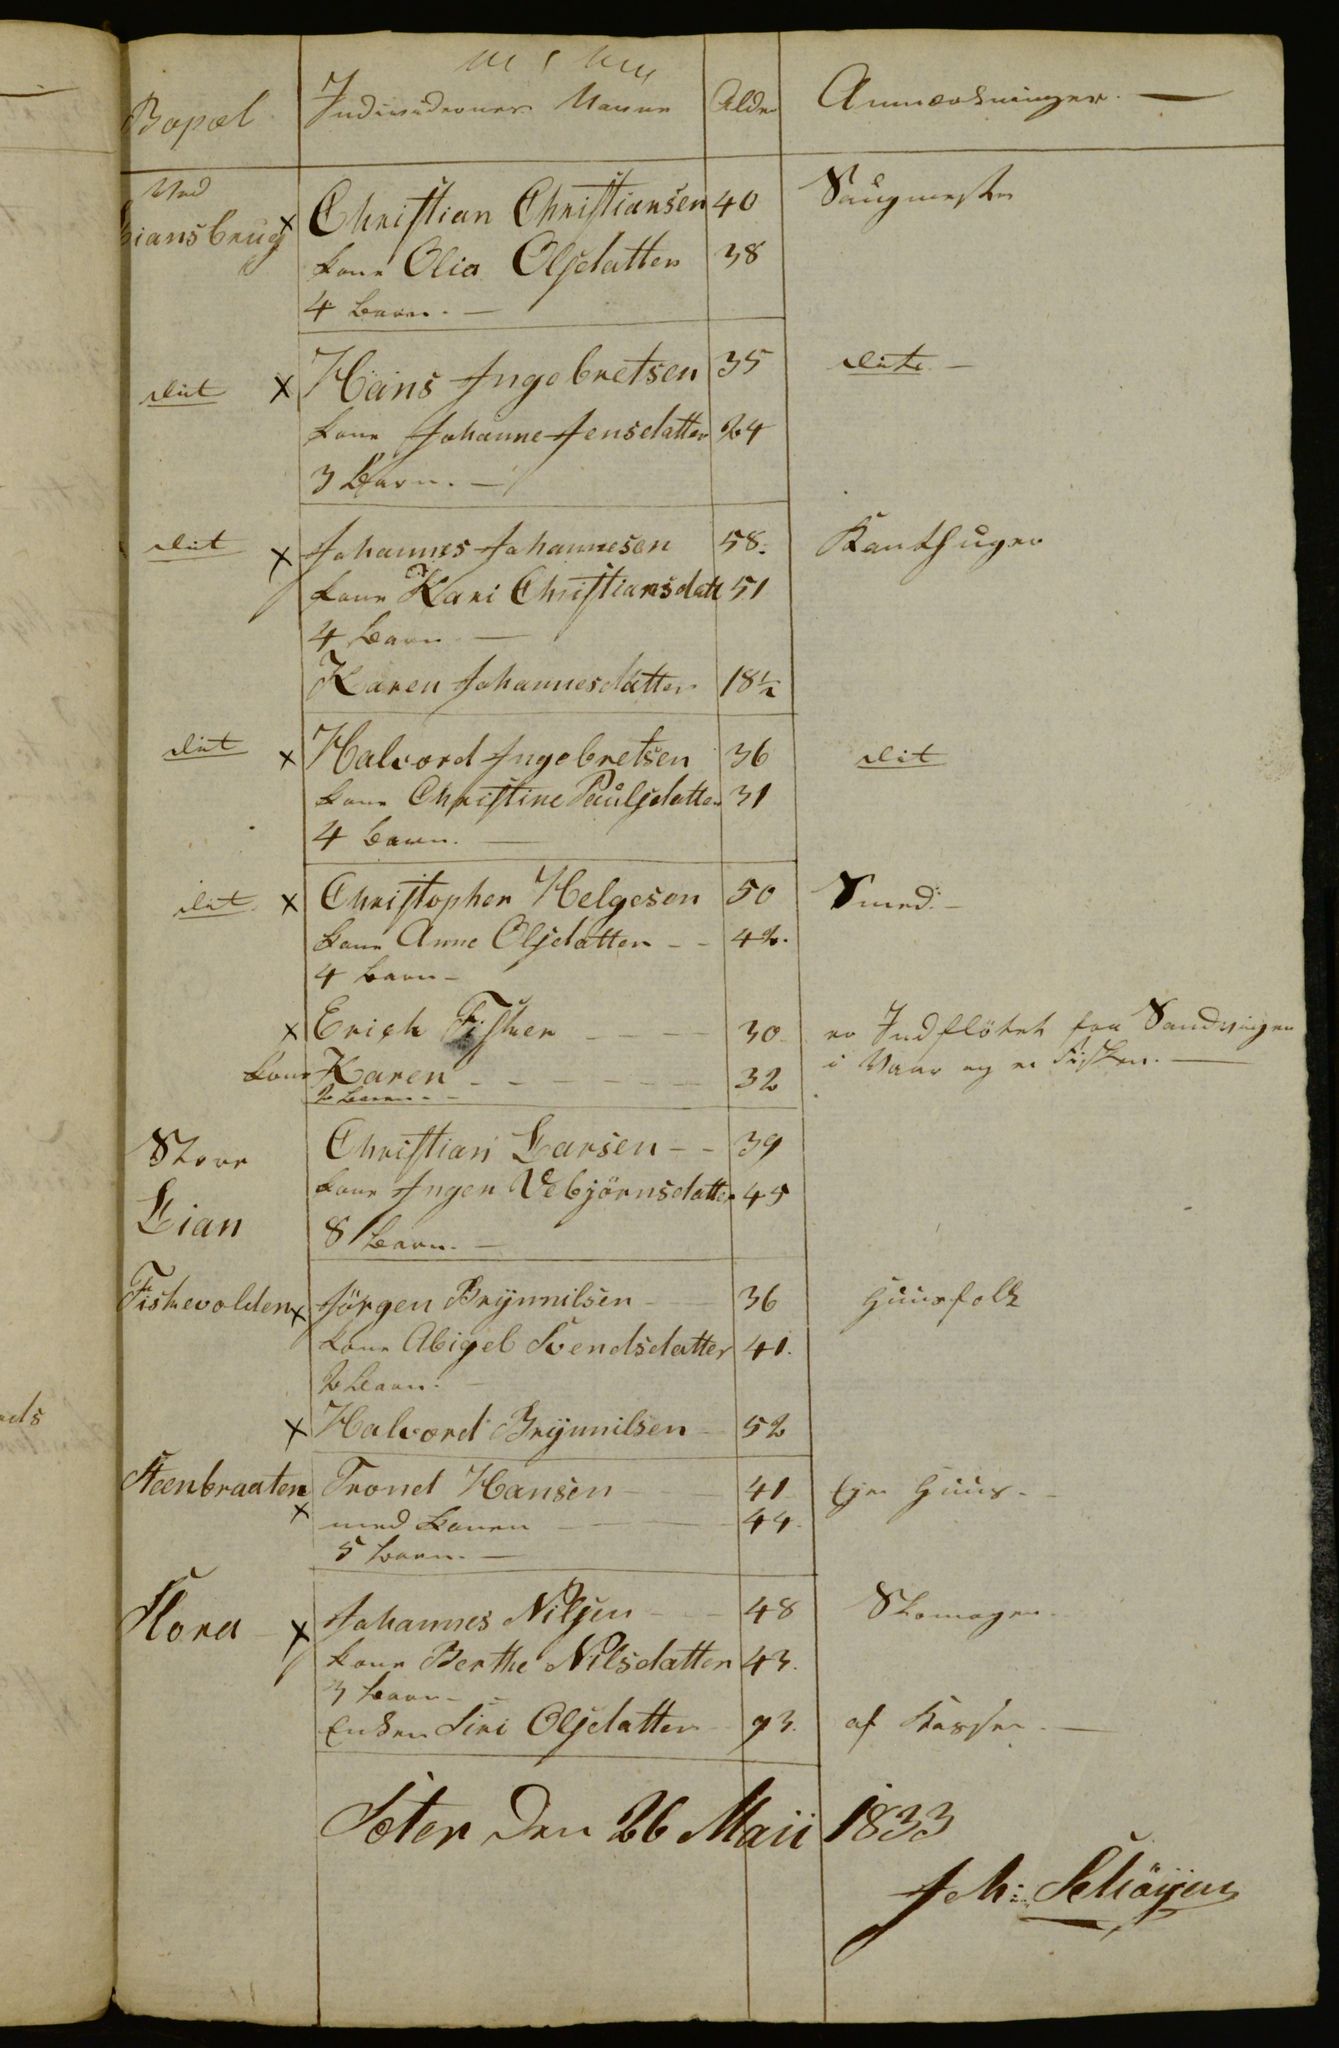 Bopæl Individernes Navne Alder Anmærkninger. —
Ved
Liansbrug x Christian Christiansen 40 Saugmester
kone Olia Olsdatter 38
4 børn. —
dit x Hans Ingebretsen 35 dito —
kone Johanne Jensdatter 24
3 børn. —
dit x Johannes Johannesen 58. Kanthuger
kone Kari Christiansdatt 51
4 børn —
Karen Johannesdatter 18½
dit x Halvord Ingebretsen 36 dit
kone Christine Paulsdatter 31
4 børn. —
dit x Christopher Helgesen 50 Smed. —
kone Anne Olsdatter - - 42.
4 børn —
x Erich Fisker - - - 30 er Indflötet fra Sandvigen
kone Karen - - - - - - 32 i Vaar og er Fisker. —
2 børn. —
Store Christian Larsen - - 39
kone Inger Vebjörnsdatter 45
Lian 8 børn. —
Fiskevolden x Jörgen Brÿnnilsen - 36 Huusfolk
kone Abigel Svendsdatter 41.
2 børn. —
x Halvord Brÿnnilsen - 52
Steenbraaten Trond Hansen - 41 Ejer Huus. —
x med konen - - - 44.
5 børn. —
Flora x Johannes Nilsen - - 48 Skomager.
kone Berthe Nilsdatter 43.
3 børn —
Enken Siri Olsdatter 93. af Kassen. —
Sæter den 26 Maii 1833
Joh: Schöÿen
ds